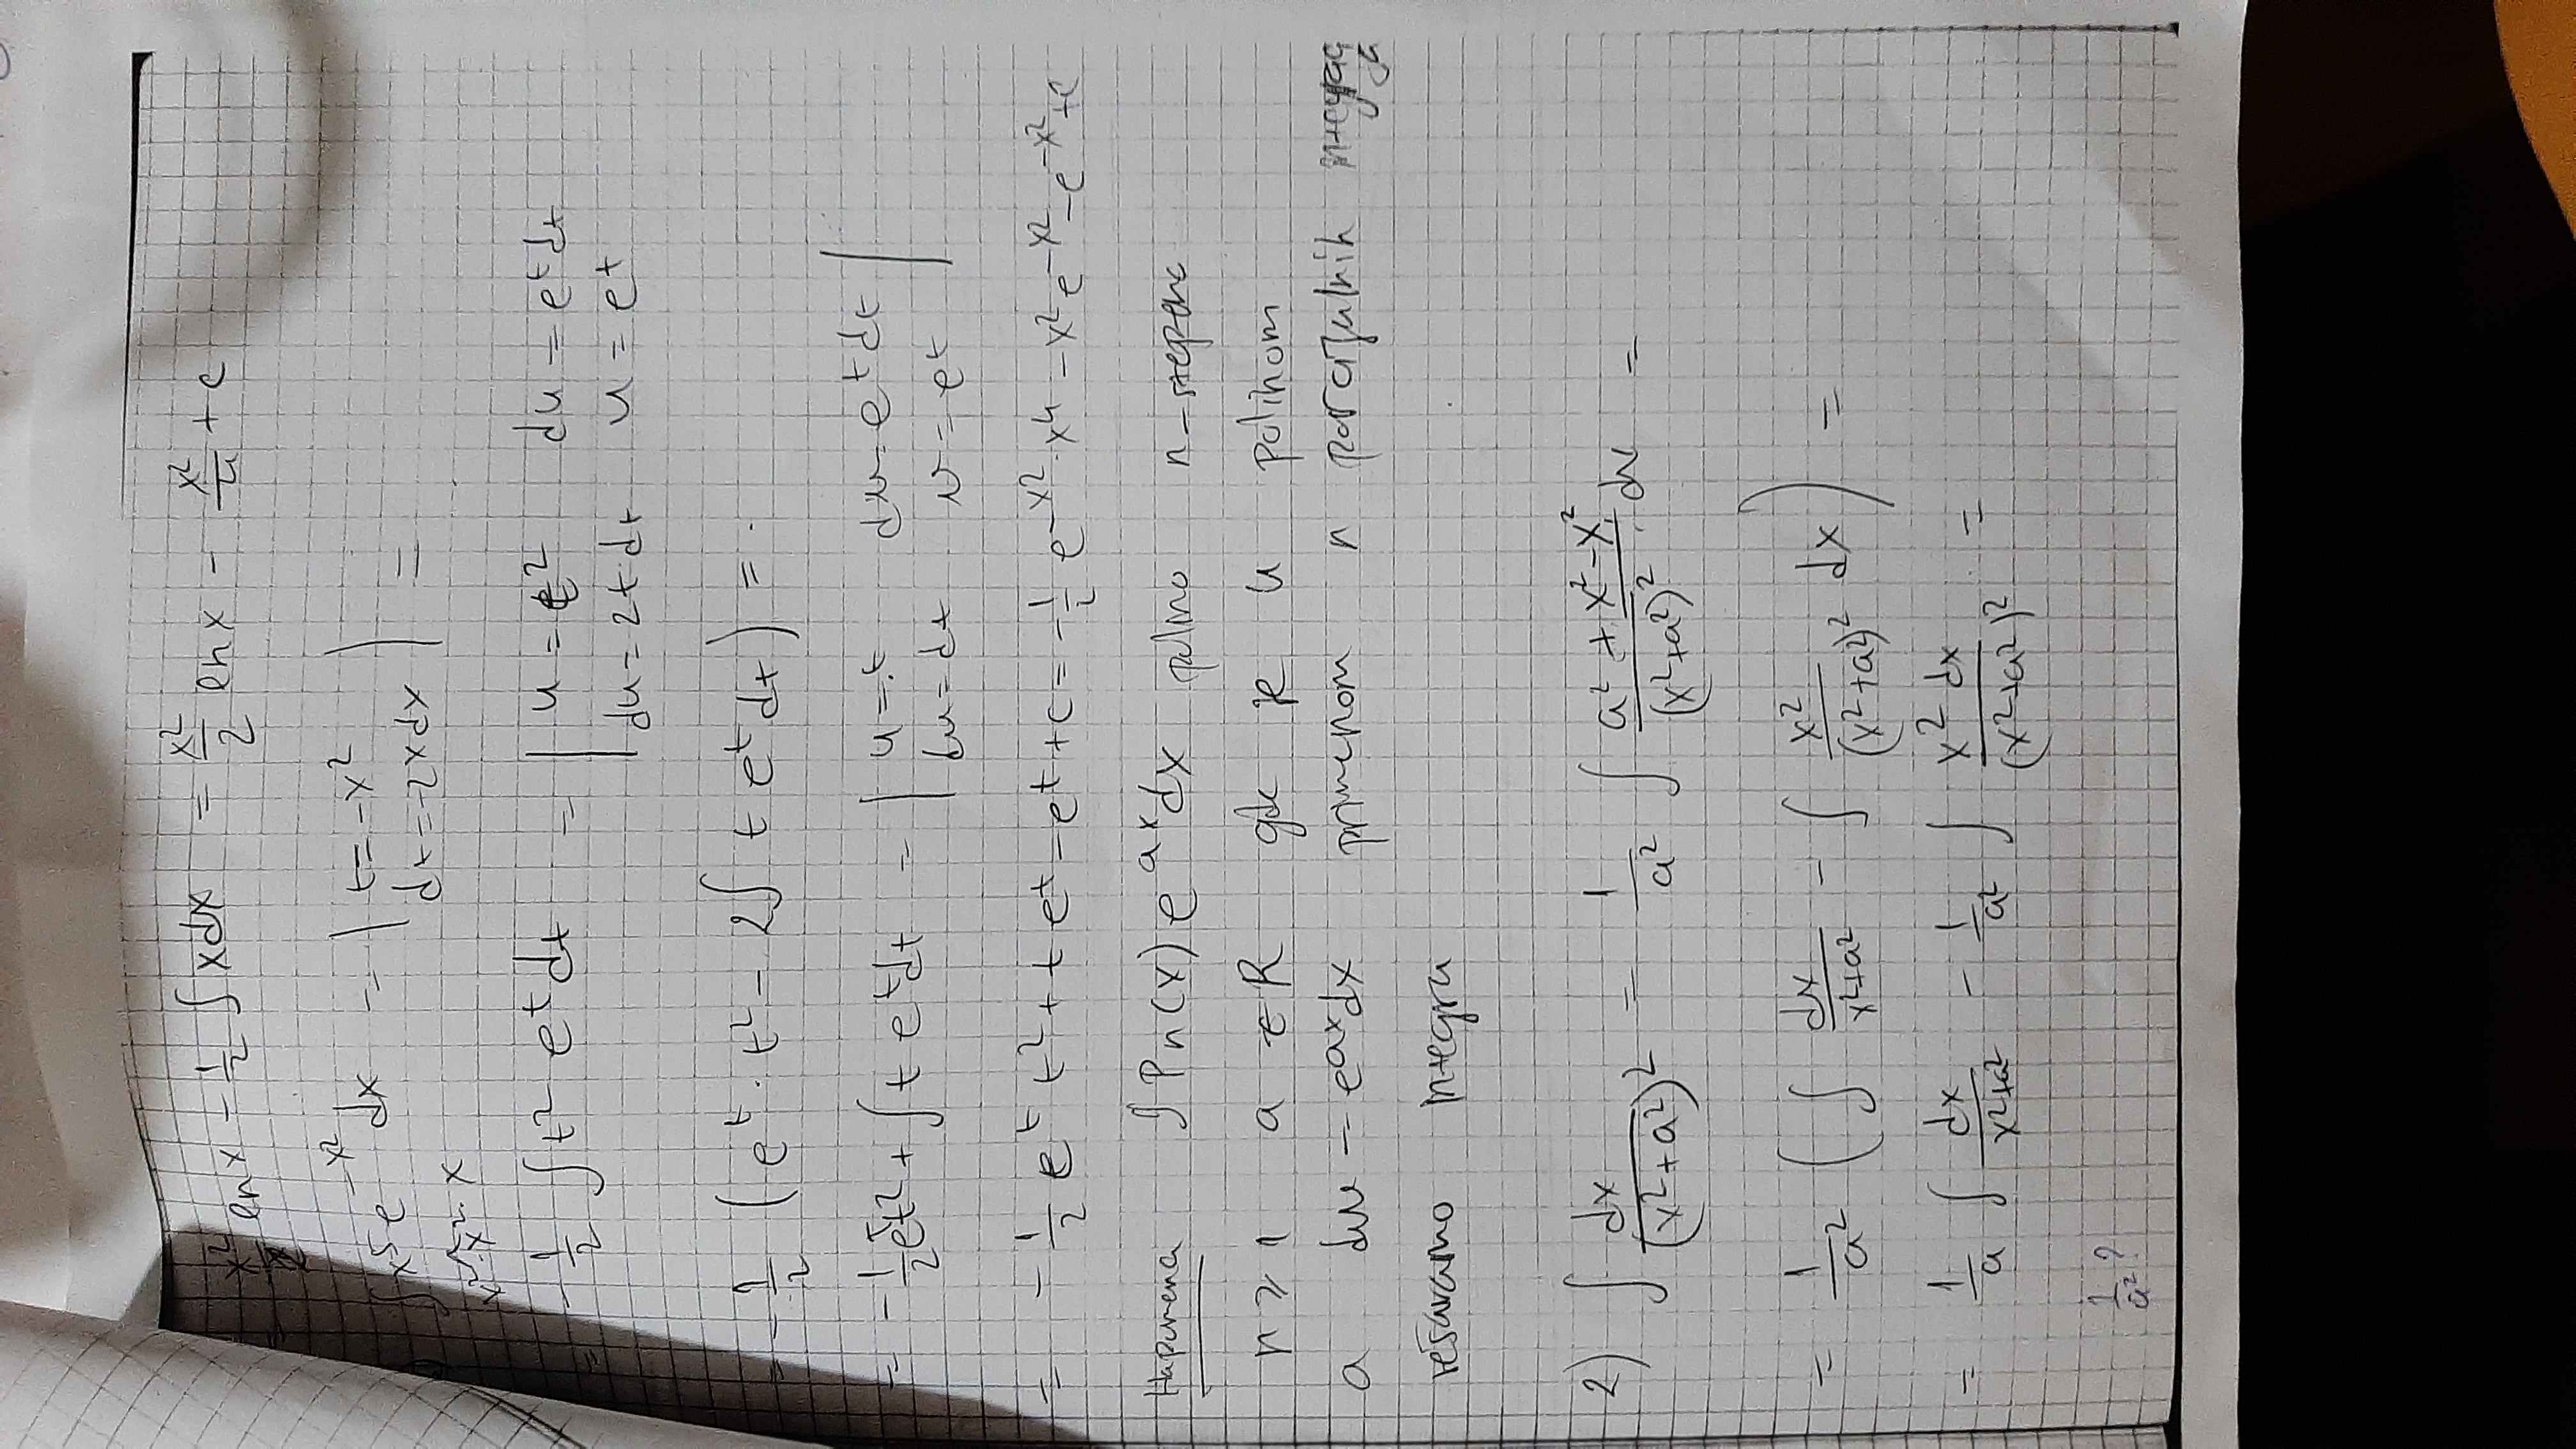 = x²/2 lnx - 1/2 ∫xdx = x²/2 lnx - x²/4 + c
∫x⁵e^(-x²) dx = | t = -x² | =
dt = -2xdx
x²·x²·x
= -1/2 ∫t² e^t dt = | u = t² dv = e^t dt
du = 2t dt v = e^t
= -1/2 (e^t · t² - 2∫ t e^t dt) =
= -1/2 e^t t² + ∫t e^t dt = | u = t dv = e^t dt |
du = dt v = e^t
= -1/2 e^t t² + t e^t - e^t + c = -1/2 e^(-x²) · x⁴ - x² e^(-x²) - e^(-x²) + c
Napomena ∫Pn(x) e^(ax) dx polino n-stepena
n ≥ 1 a ∈ R gde je u polinom
a dv = e^(ax) dx primenom n parcijalnih integracija
rešavamo integra
2) ∫ dx/(x²+a²)² = 1/a² ∫ (a² + x² - x²)/(x²+a²)² dx =
= 1/a² ( ∫ dx/(x²+a²) - ∫ x²/(x²+a²)² dx ) =
= 1/a ∫ dx/(x²+a²) - 1/a² ∫ x² dx/(x²+a²)² =
1/a² ?